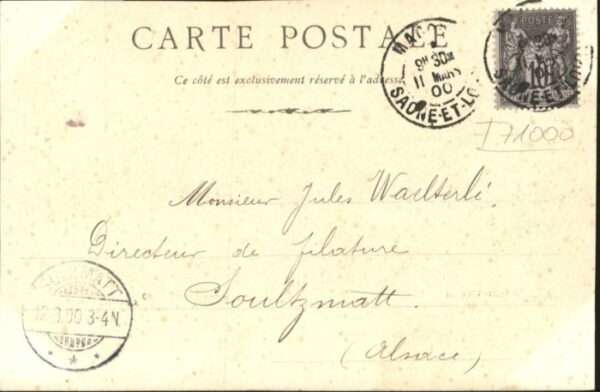 CARTE POSTALE
Ce côté est exclusivement réservé à l'adresse
9H 30M
11 MARS
00
SAONE-ET-LOIRE
POSTE
71000
Monsieur Jules Waelterlé.
Directeur de filature
Soultzmatt.
(Alsace)
3-4N.